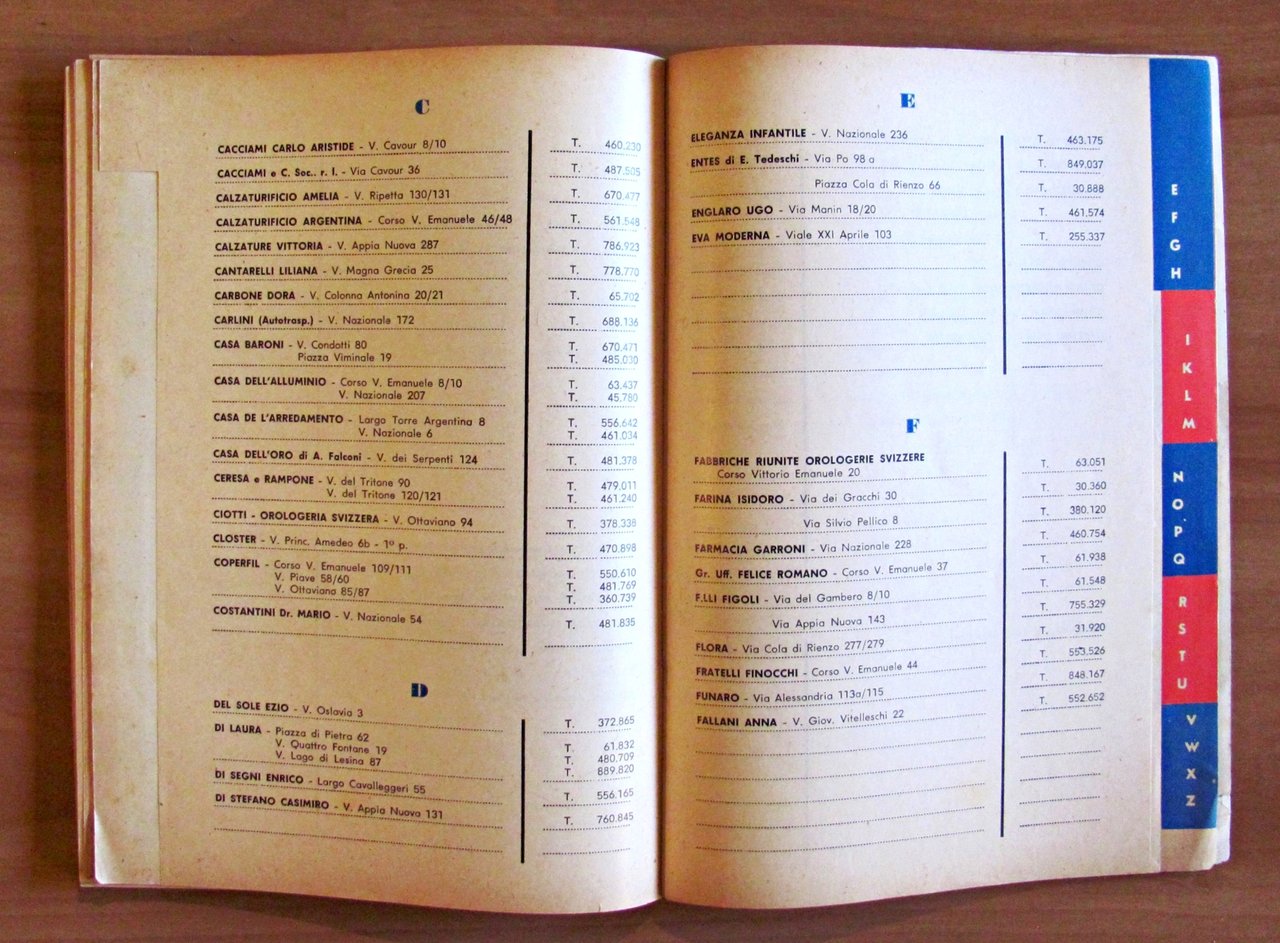 C
CACCIAMI CARLO ARISTIDE - V. Cavour 8/10 T. 460.230
CACCIAMI e C. Soc.. r. l. - Via Cavour 36 T. 487.505
CALZATURIFICIO AMELIA - V. Ripetta 130/131 T. 670.477
CALZATURIFICIO ARGENTINA - Corso V. Emanuele 46/48 T. 561.548
CALZATURE VITTORIA - V. Appia Nuova 287 T. 786.923
CANTARELLI LILIANA - V. Magna Grecia 25 T. 778.770
CARBONE DORA - V. Colonna Antonina 20/21 T. 65.702
CARLINI (Autotrasp.) - V. Nazionale 172 T. 688.136
CASA BARONI - V. Condotti 80 T. 670.471
Piazza Viminale 19 T. 485.030
CASA DELL'ALLUMINIO - Corso V. Emanuele 8/10 T. 63.437
V. Nazionale 207 T. 45.780
CASA DE L'ARREDAMENTO - Largo Torre Argentina 8 T. 556.642
V. Nazionale 6 T. 461.034
CASA DELL'ORO di A. Falconi - V. dei Serpenti 124 T. 481.378
CERESA e RAMPONE - V. del Tritone 90 T. 479.011
V. del Tritone 120/121 T. 461.240
CIOTTI - OROLOGERIA SVIZZERA - V. Ottaviano 94 T. 378.338
CLOSTER - V. Princ. Amedeo 6b - 1º p. T. 470.898
COPERFIL - Corso V. Emanuele 109/111 T. 550.610
V. Piave 58/60 T. 481.769
V. Ottaviano 85/87 T. 360.739
COSTANTINI Dr. MARIO - V. Nazionale 54 T. 481.835
D
DEL SOLE EZIO - V. Oslavia 3 T. 372.865
DI LAURA - Piazza di Pietra 62 T. 61.832
V. Quattro Fontane 19 T. 480.709
V. Lago di Lesina 87 T. 889.820
DI SEGNI ENRICO - Largo Cavalleggeri 55 T. 556.165
DI STEFANO CASIMIRO - V. Appia Nuova 131 T. 760.845
E
ELEGANZA INFANTILE - V. Nazionale 236 T. 463.175
ENTES di E. Tedeschi - Via Po 98 a T. 849.037
Piazza Cola di Rienzo 66 T. 30.888
ENGLARO UGO - Via Manin 18/20 T. 461.574
EVA MODERNA - Viale XXI Aprile 103 T. 255.337
F
FABBRICHE RIUNITE OROLOGERIE SVIZZERE
Corso Vittorio Emanuele 20 T. 63.051
FARINA ISIDORO - Via dei Gracchi 30 T. 30.360
Via Silvio Pellico 8 T. 380.120
FARMACIA GARRONI - Via Nazionale 228 T. 460.754
Gr. Uff. FELICE ROMANO - Corso V. Emanuele 37 T. 61.938
F.LLI FIGOLI - Via del Gambero 8/10 T. 61.548
Via Appia Nuova 143 T. 755.329
FLORA - Via Cola di Rienzo 277/279 T. 31.920
FRATELLI FINOCCHI - Corso V. Emanuele 44 T. 553.526
FUNARO - Via Alessandria 113a/115 T. 848.167
FALLANI ANNA - V. Giov. Vitelleschi 22 T. 552.652
E
F
G
H
I
K
L
M
N
O
P
Q
R
S
T
U
V
W
X
Z